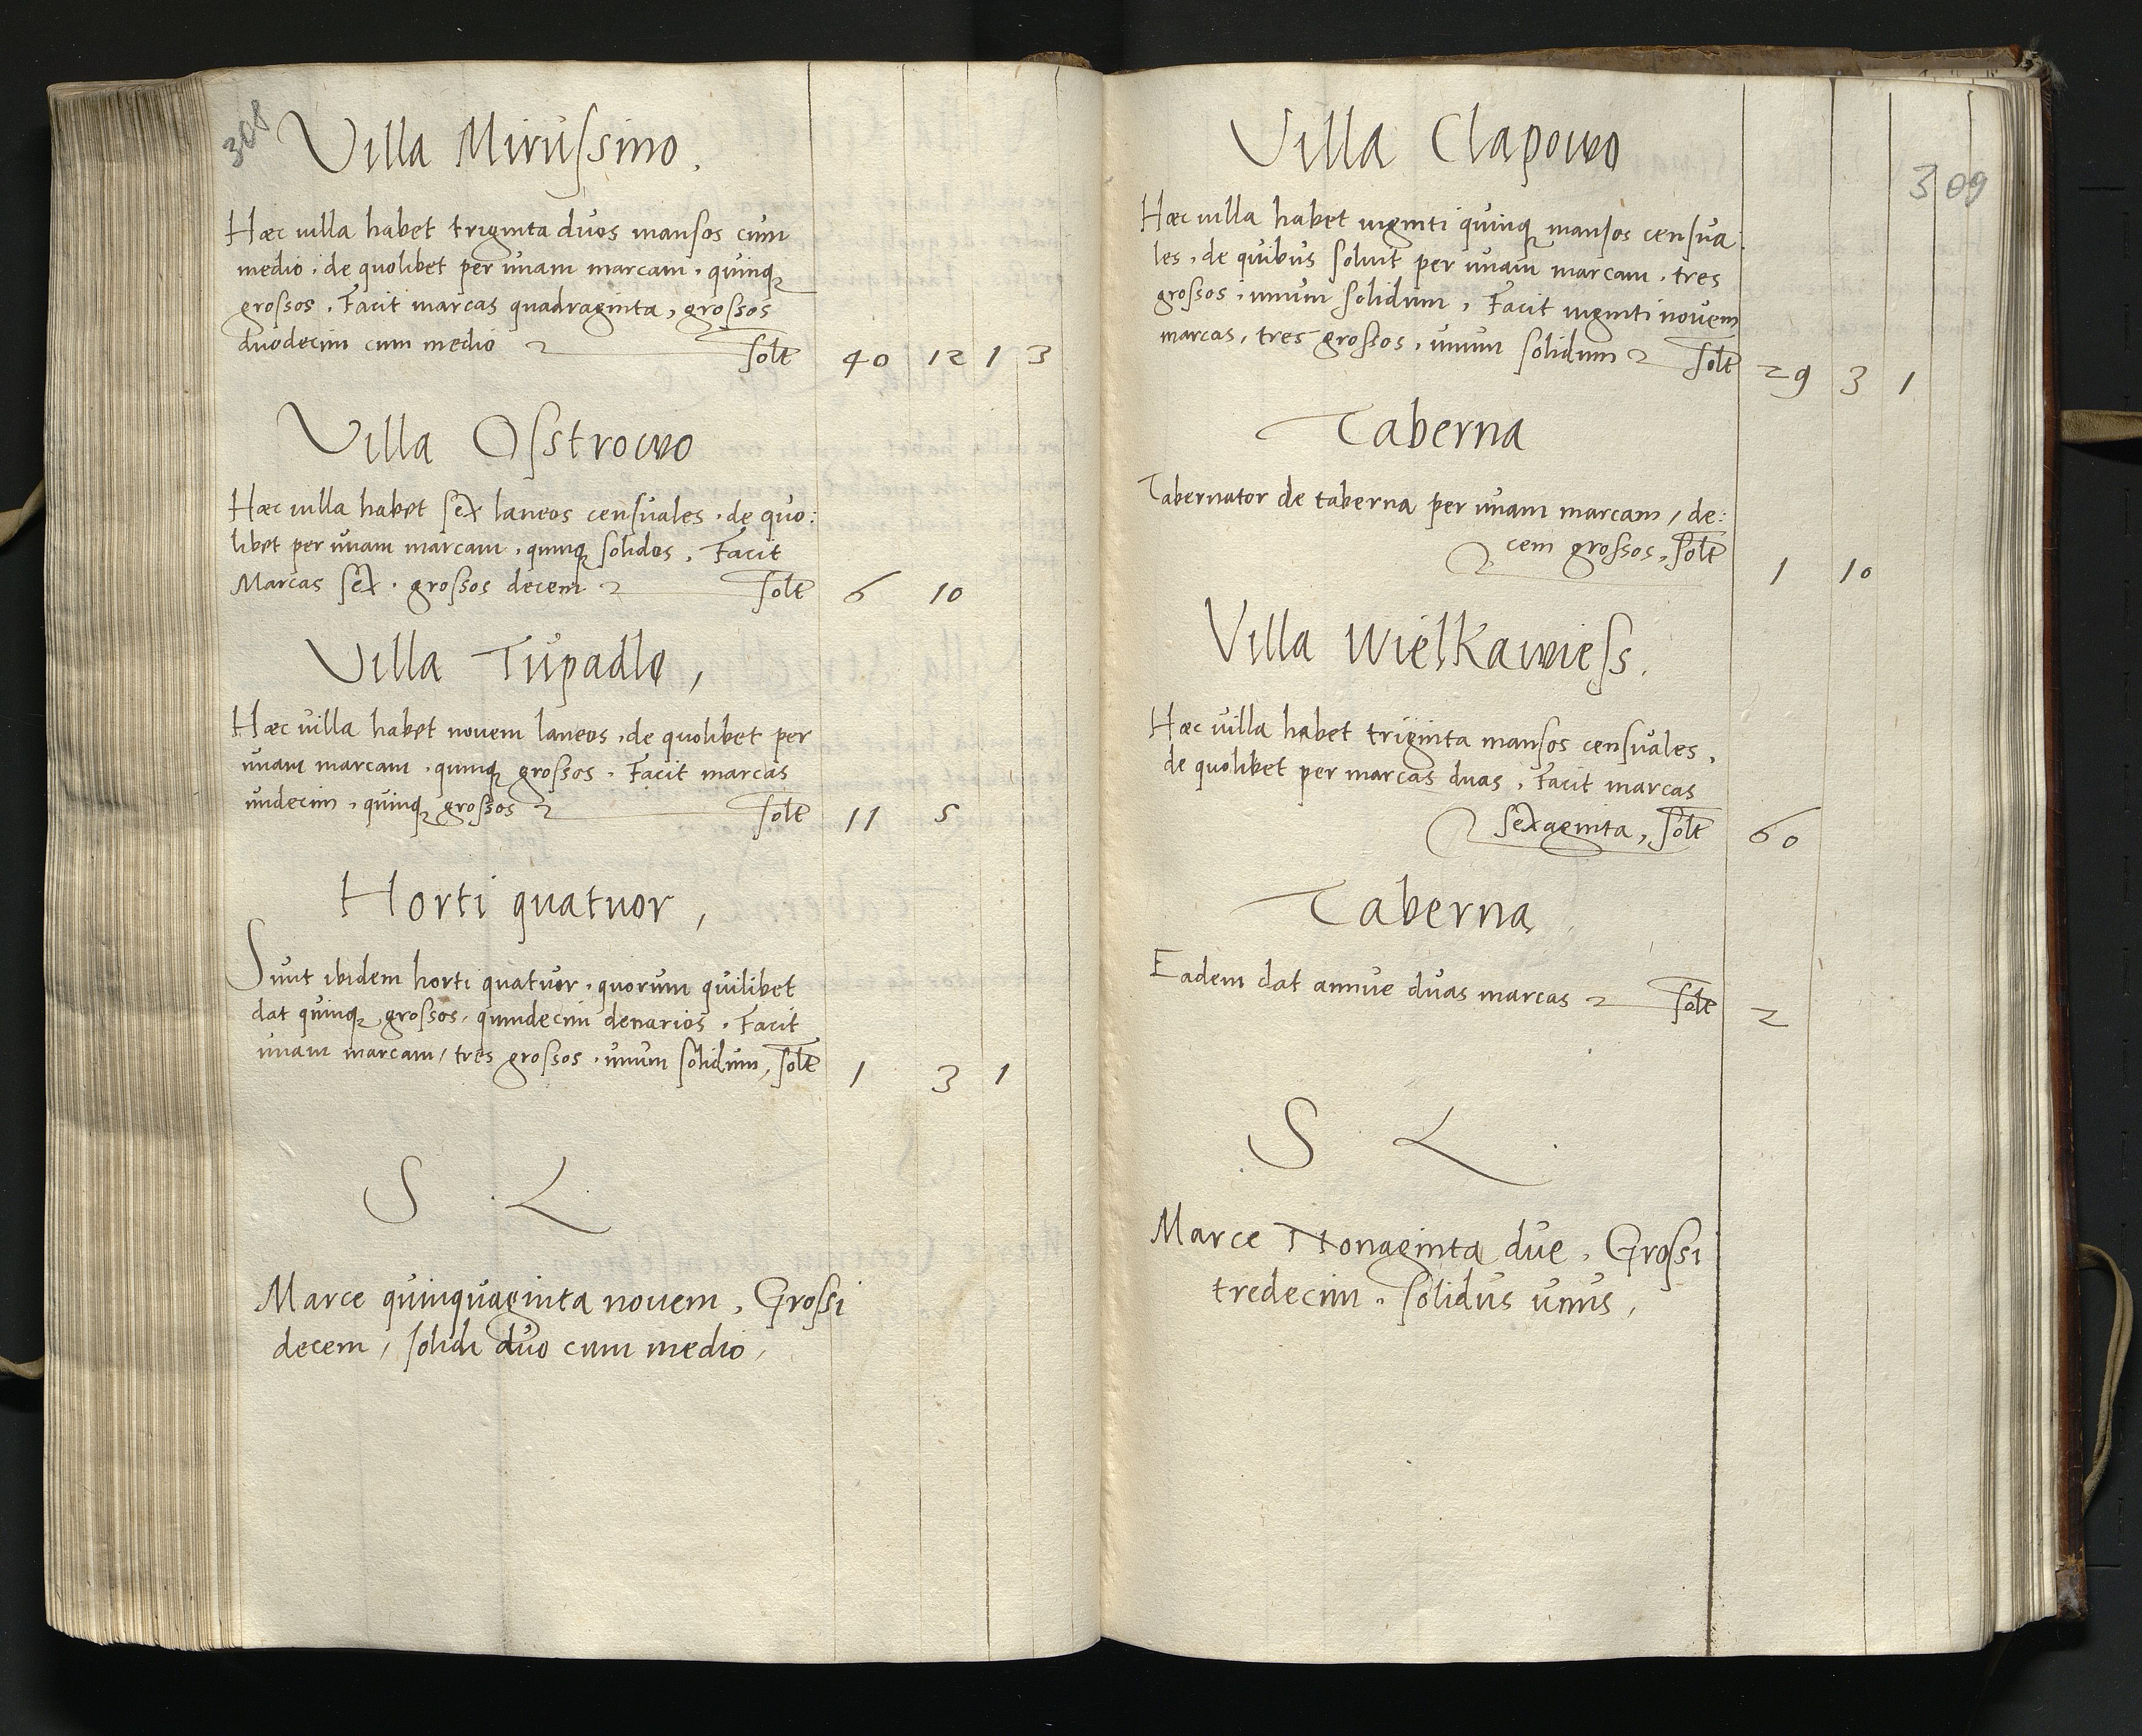 308
Villa Mirussino.
Hæc uilla habet triginta duos mansos cum
medio, de quolibet per unam marcam, quinq
grossos. Facit marcas quadraginta, grossos
duodecim cum medio solt 40 12 1 3
Villa Osstrowo
Hæc uilla habet sex laneos censuales, de quo:
libet per unam marcam, quinq solidos. Facit
Marcas sex, grossos decem solt 6 10
Villa Tupadlo,
Hæc uilla habet nouem laneos, de quolibet per
unam marcam, quinq grossos. Facit marcas
undecim, quinq grossos solt 11 5
Horti quatuor,
Sunt ibidem horti quatuor, quorum quilibet
dat quinq grossos, quindecim denarios. Facit
unam marcam, tres grossos, unum solidum, solt 1 3 1
S L
Marce quinquaginta nouem, Grossi
decem, solidi duo cum medio,
309
Villa Clapowo
Hæc uilla habet uiginti quinq mansos censua:
les, de quibus soluit per unam marcam, tres
grossos, unum solidum, Facit uiginti nouem
marcas, tres grossos, unum solidum solt 29 3 1
Taberna
Tabernator de taberna per unam marcam, de:
cem grossos, solt 1 10
Villa Wielkawiess.
Hæc uilla habet triginta mansos censuales,
de quolibet per marcas duas, Facit marcas
sexaginta, solt 60
Taberna
Eadem dat annue duas marcas solt 2
S L
Marce Nonaginta due, Grossi
tredecim, solidus unus,